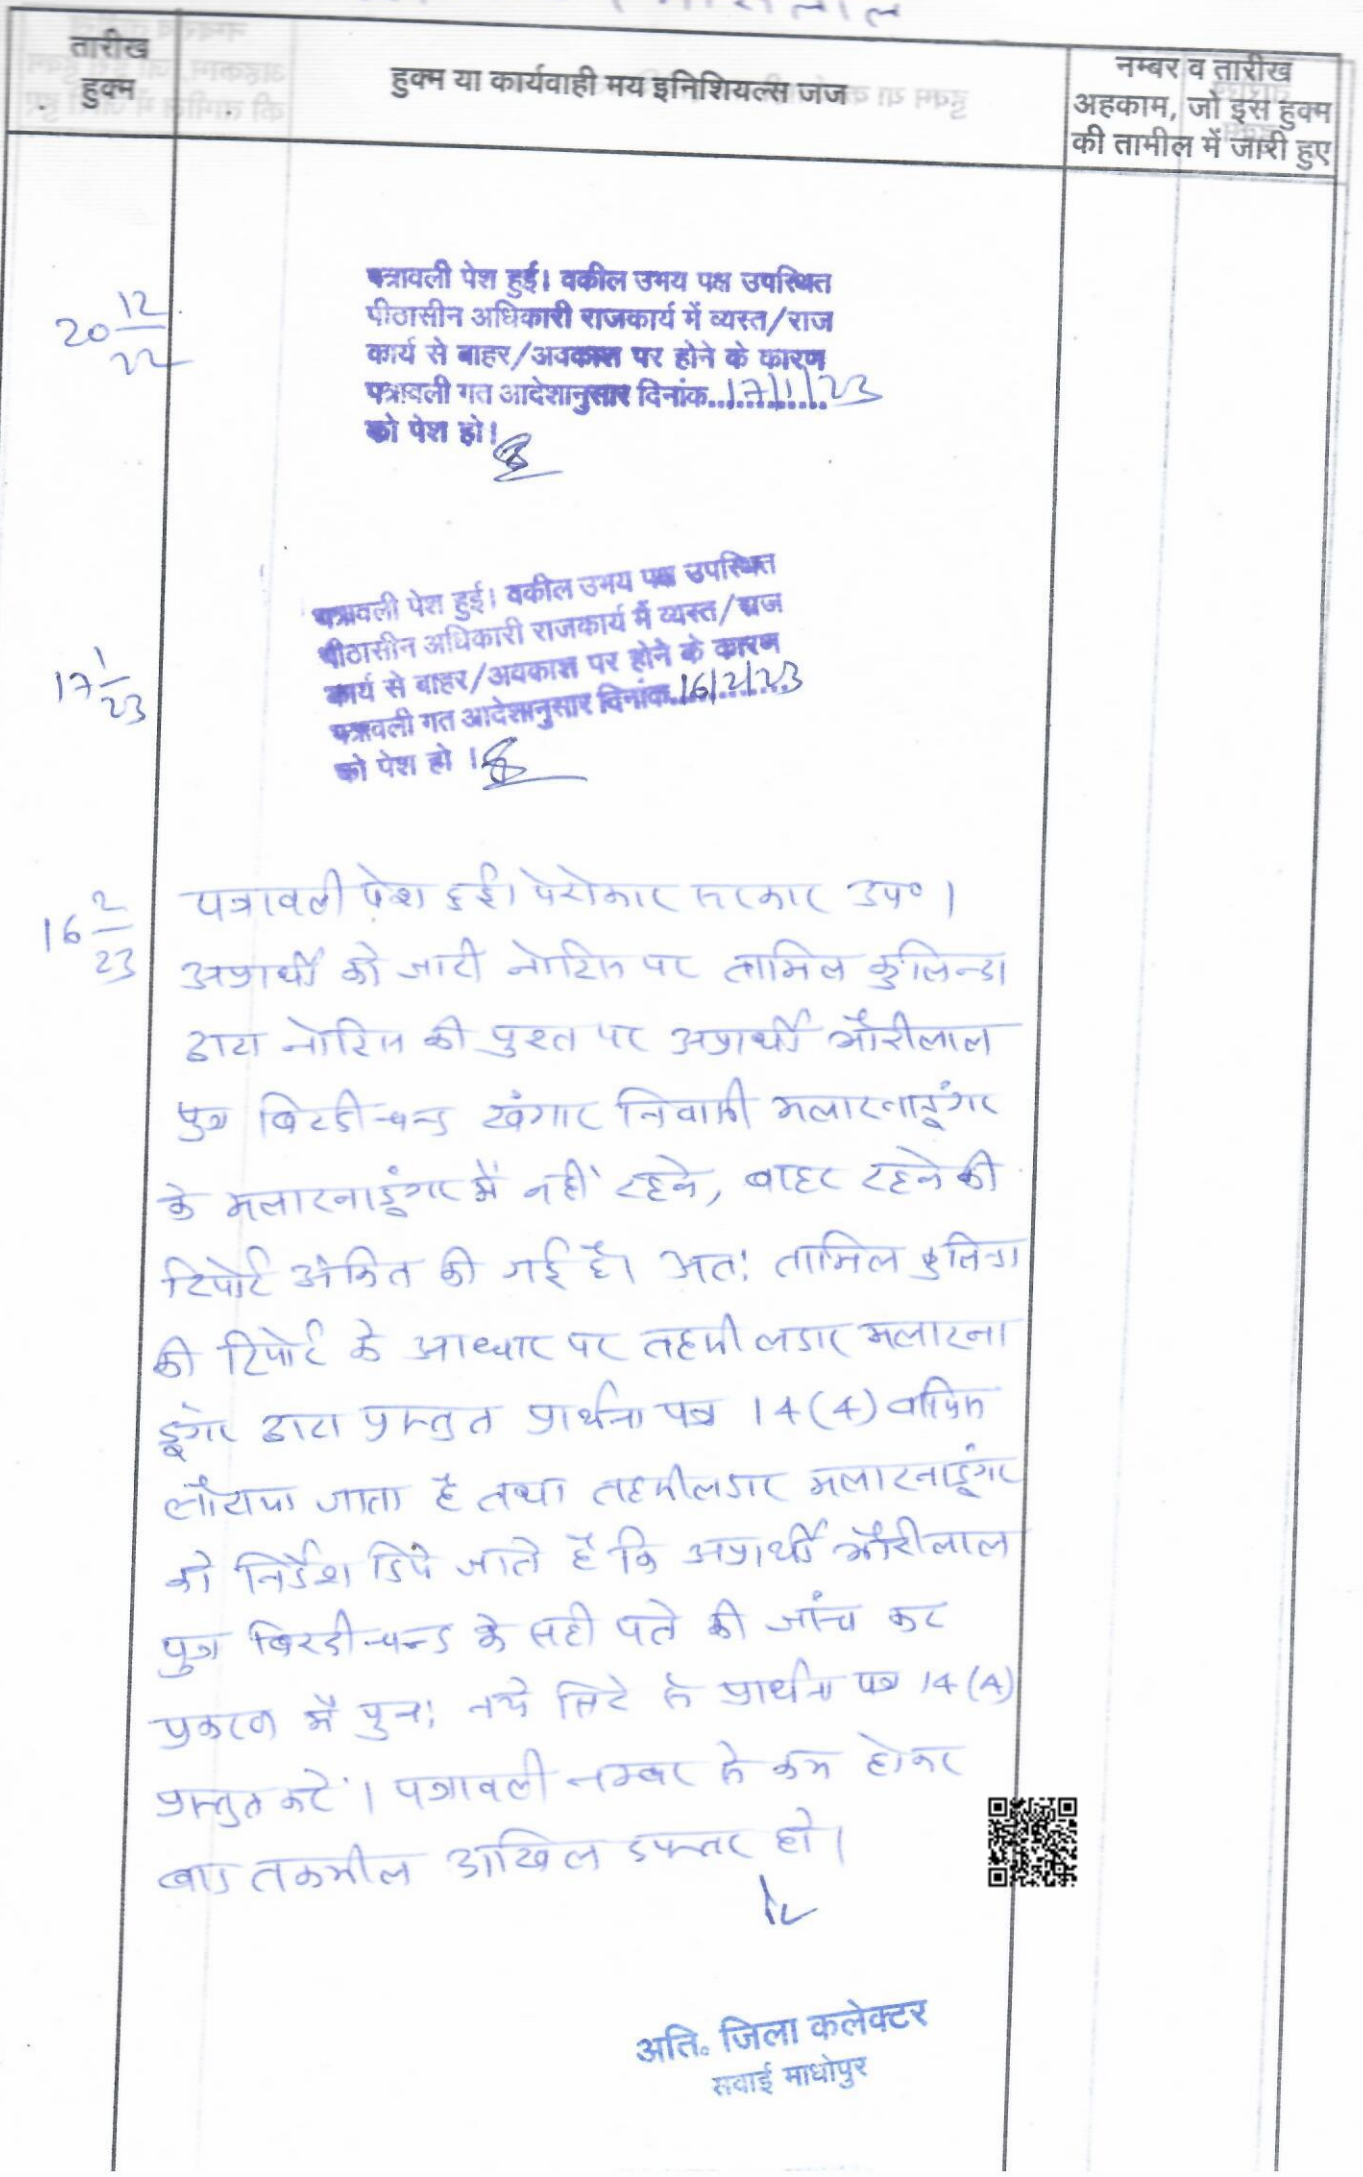 तारीख
हुक्म
हुक्म या कार्यवाही मय इनिशियल्स जज
नम्बर व तारीख
अहकाम, जो इस हुक्म
की तामील में जारी हुए
20 12/22
पत्रावली पेश हुई। वकील उभय पक्ष उपस्थित
पीठासीन अधिकारी राजकार्य में व्यस्त/राज
कार्य से बाहर/अवकाश पर होने के कारण
पत्रावली गत आदेशानुसार दिनांक..17/1/23
को पेश हो।
17 1/23
पत्रावली पेश हुई। वकील उभय पक्ष उपस्थित
पीठासीन अधिकारी राजकार्य में व्यस्त/राज
कार्य से बाहर/अवकाश पर होने के कारण
पत्रावली गत आदेशानुसार दिनांक..16/2/23
को पेश हो ।
16 2/23
पत्रावली पेश हुई। पेरोकार सरकार उप० ।
अप्रार्थी को जारी नोटिस पर तामिल कुलिन्दा
द्वारा नोटिस की पुश्त पर अप्रार्थी भौंरीलाल
पुत्र बिरदीचन्द खंगार निवासी मलारनाडूंगर
के मलारनाडूंगर में नहीं रहने, बाहर रहने की
रिपोर्ट अंकित की गई है। अतः तामिल कुलिन्दा
की रिपोर्ट के आधार पर तहसीलदार मलारना
डूंगर द्वारा प्रस्तुत प्रार्थना पत्र 14(4) वापिस
लौटाया जाता है तथा तहसीलदार मलारनाडूंगर
को निर्देश दिये जाते है कि अप्रार्थी भौंरीलाल
पुत्र बिरदीचन्द के सही पते की जांच कर
प्रकरण में पुनः नये सिरे से प्रार्थना पत्र 14(4)
प्रस्तुत करें। पत्रावली नम्बर से कम होकर
बाद तकमील दाखिल दफ्तर हो।
अति. जिला कलेक्टर
सवाई माधोपुर